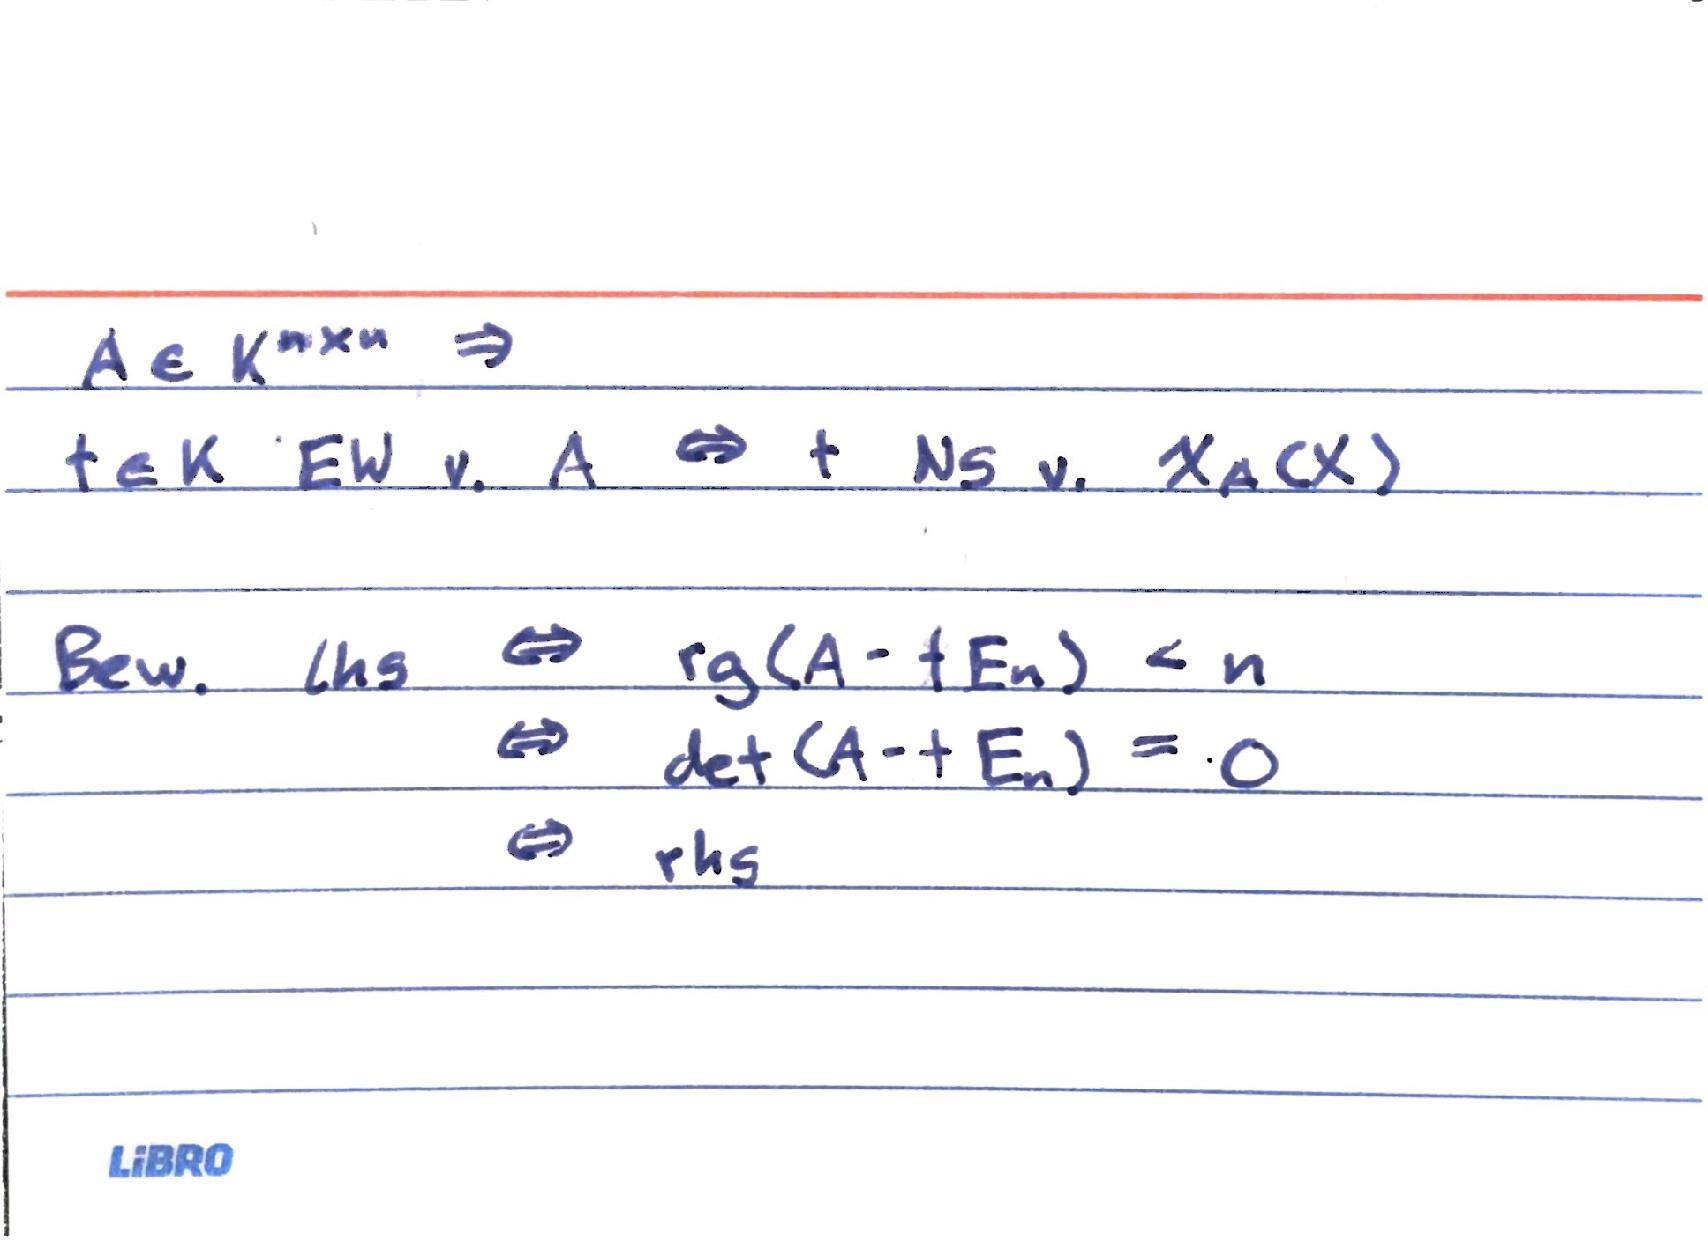 A ∈ K^{n×n} ⇒
t ∈ K EW v. A ⇔ t NS v. χ_A(X)
Bew. lhs ⇔ rg(A - tE_n) < n
⇔ det(A - tE_n) = 0
⇔ rhs
LiBRO